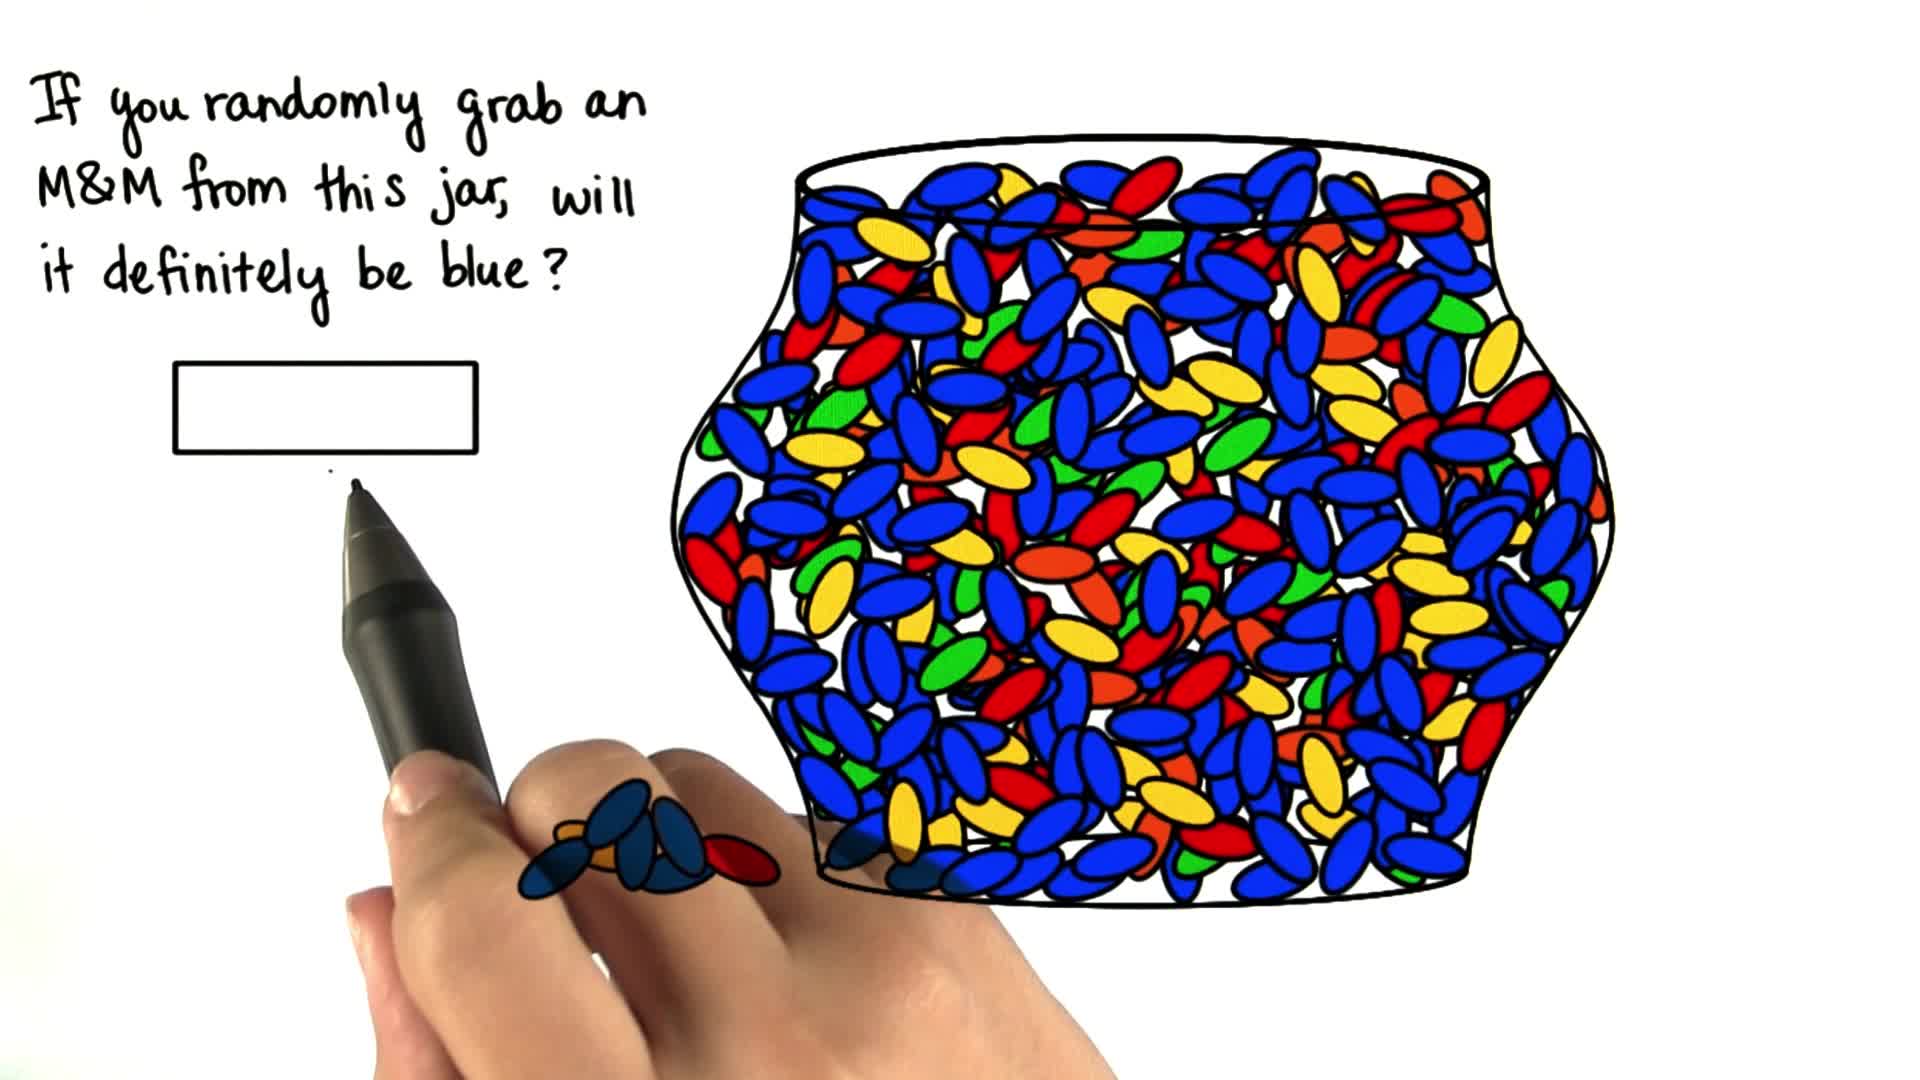 If you randomly grab an
M&M from this jar, will
it definitely be blue?